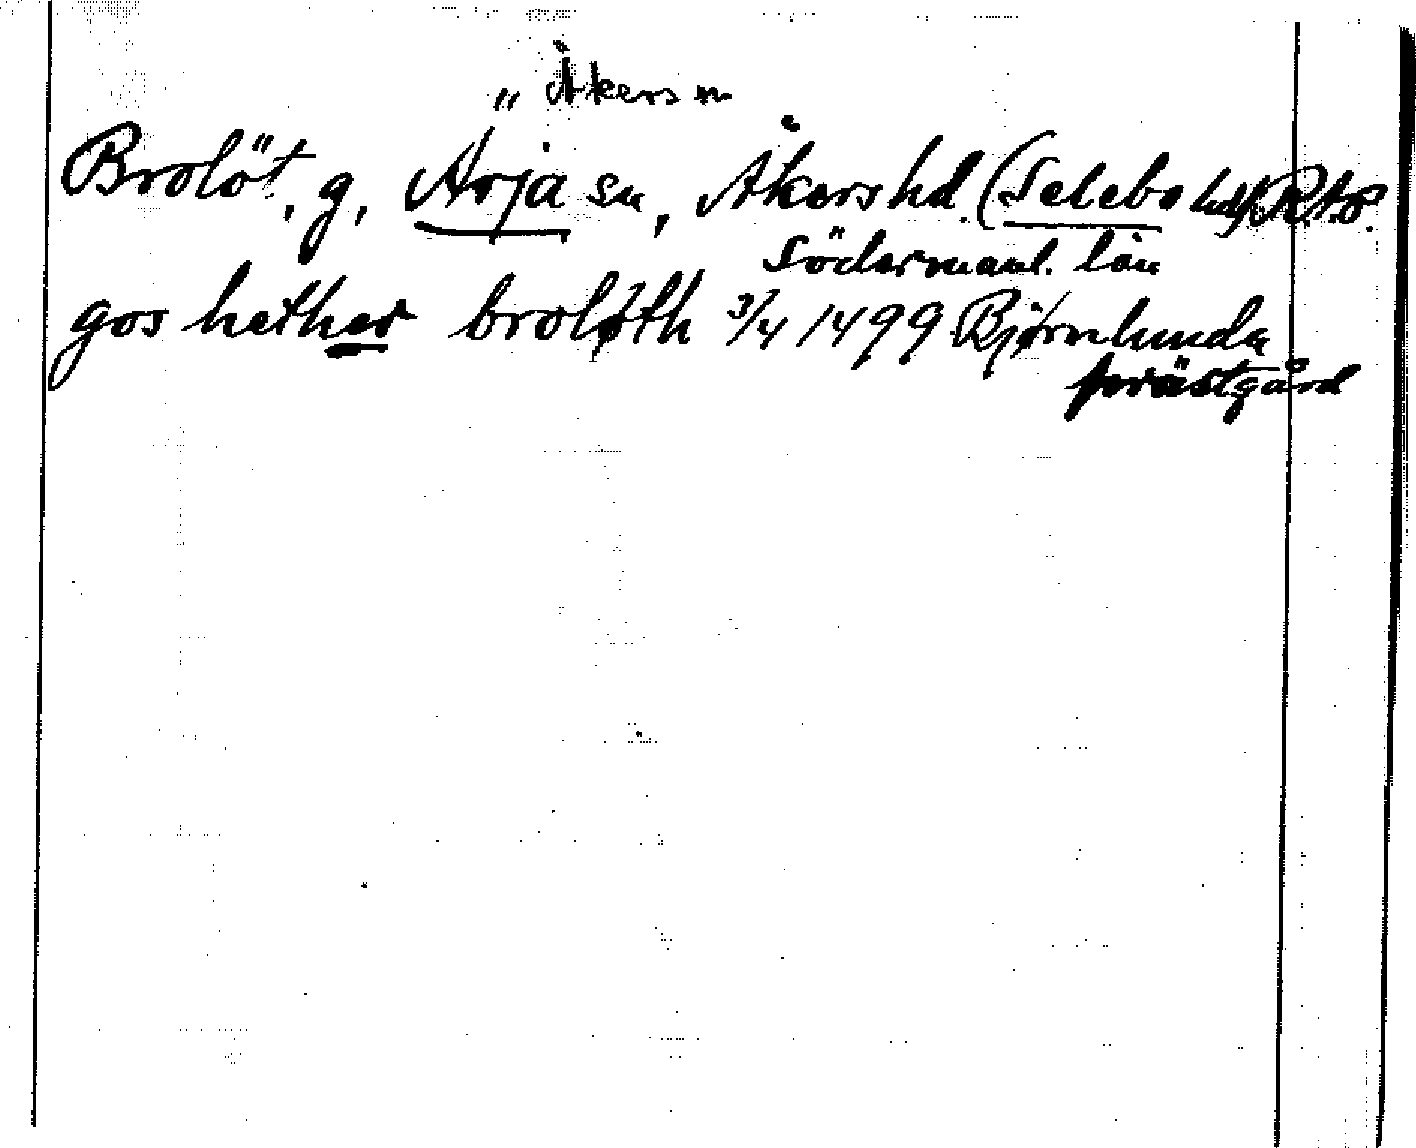 „ Åkers sn
Brolöt, g, Ärja sn, Åkers hd. (Selebo hd) R.A.P.
Södermanl. län
gos hether broløth 3/4 1499 Bjørnlunda
prästgård